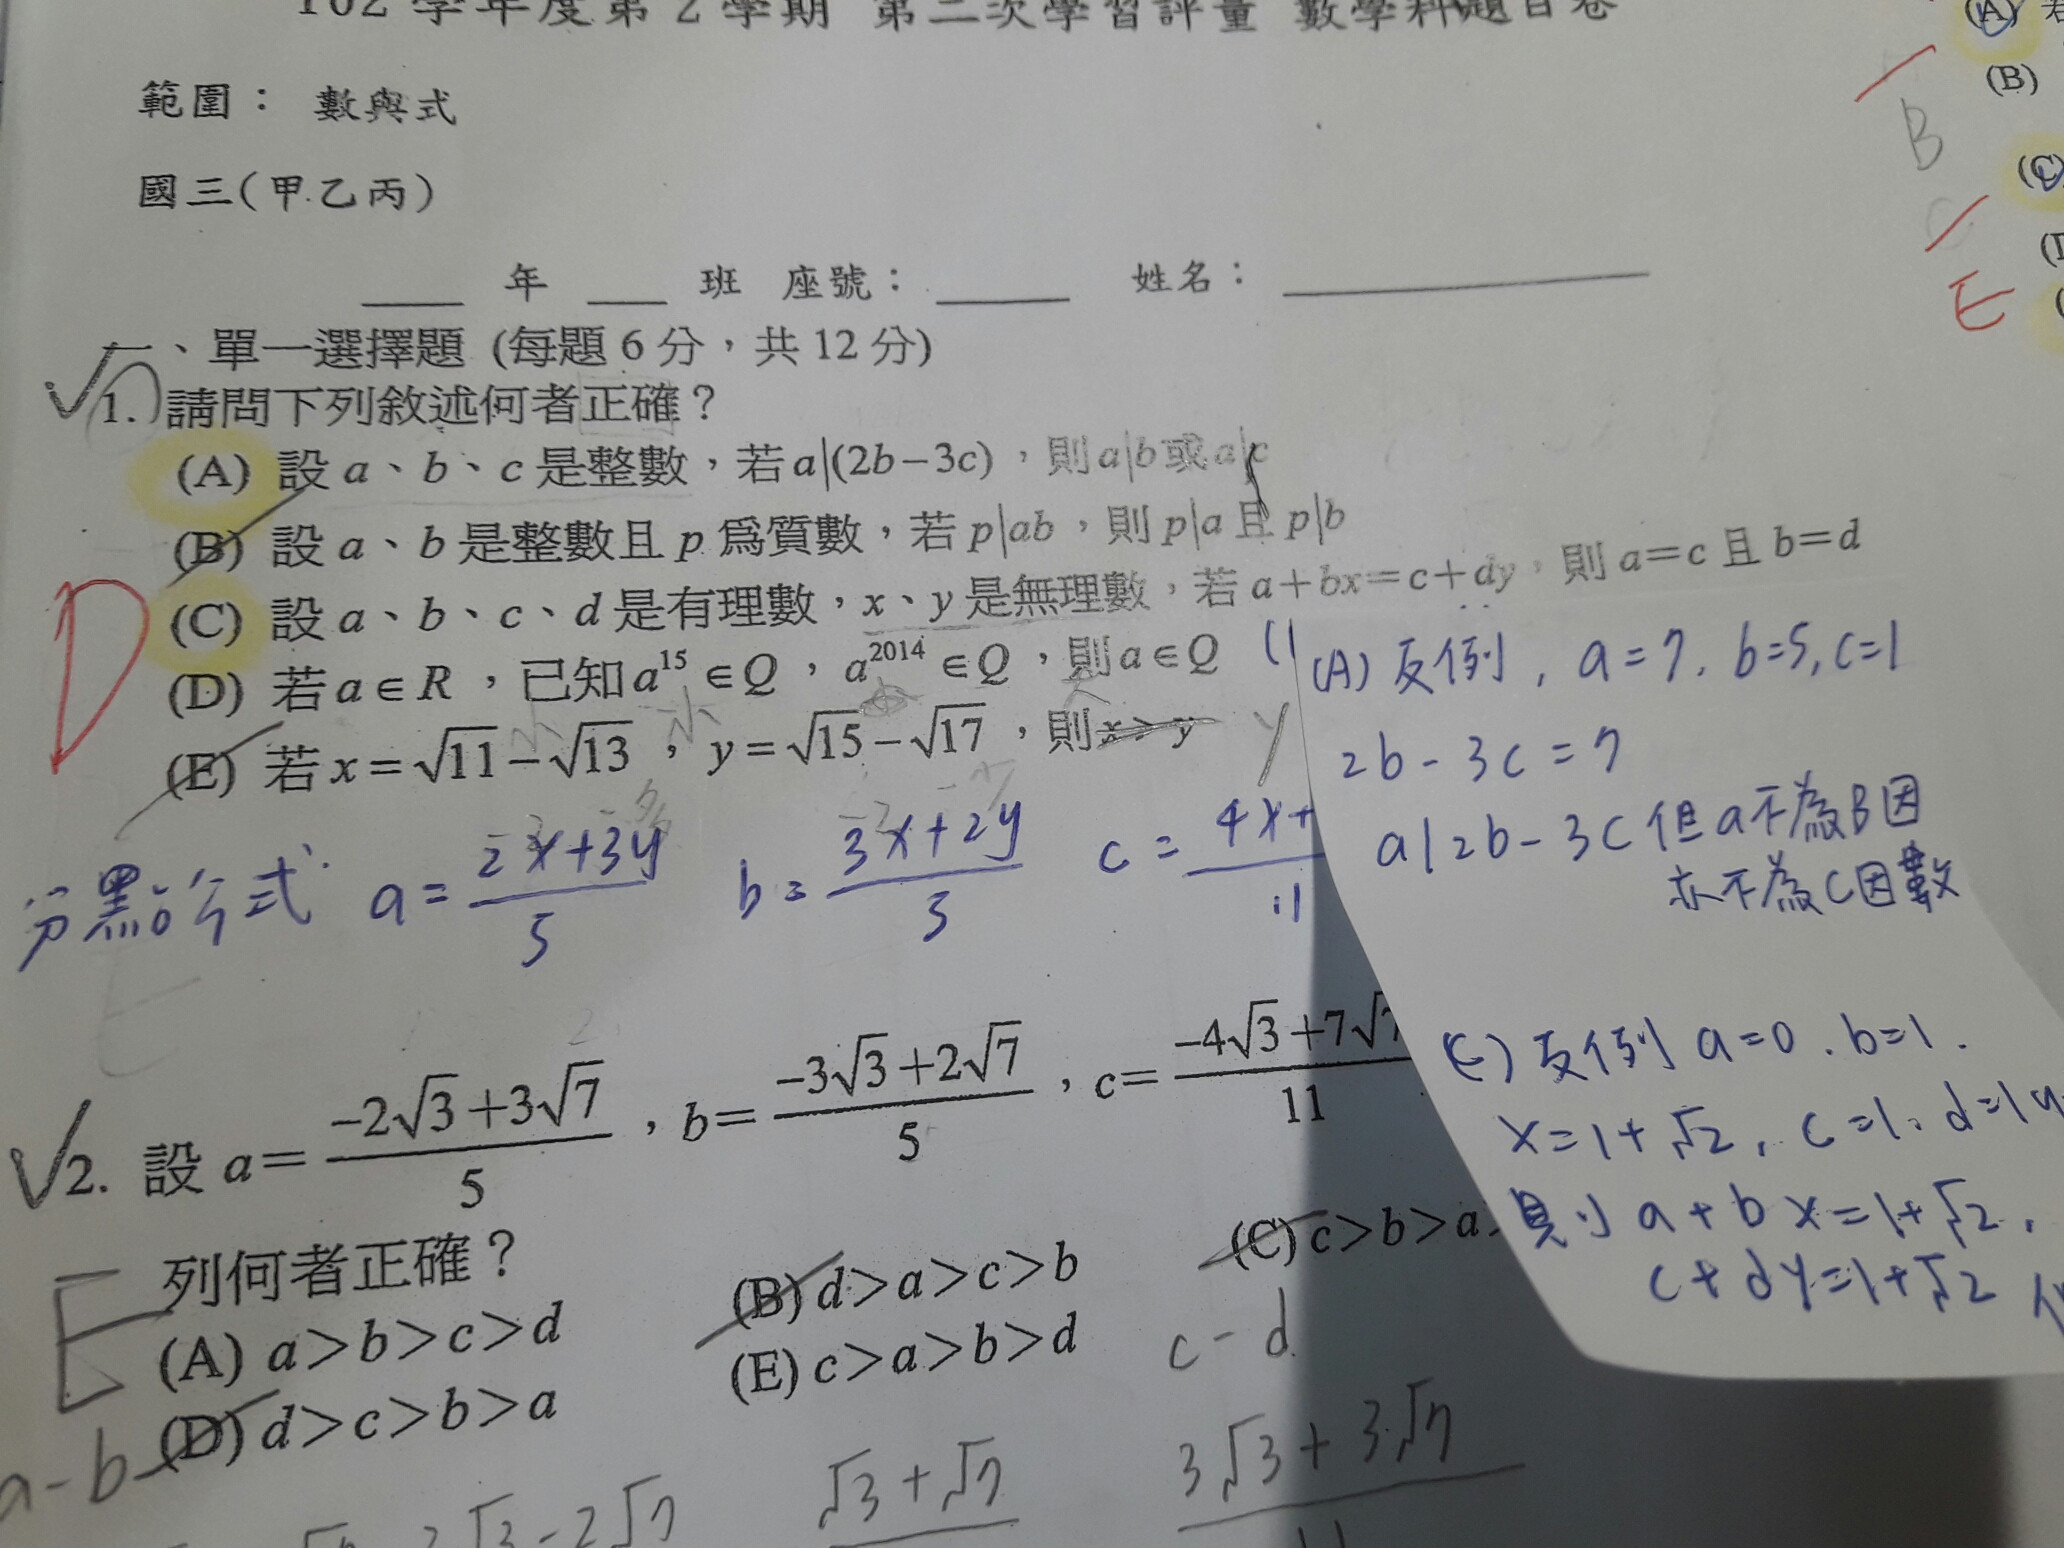 102 學年度第 2 學期 第二次學習評量 數學科題目卷
範圍： 數與式
國三(甲乙丙)
年 班 座號： 姓名：
一、單一選擇題 (每題 6 分，共 12 分)
1. 請問下列敘述何者正確？
(A) 設 a、b、c 是整數，若 a|(2b−3c)，則 a|b 或 a|c
(B) 設 a、b 是整數且 p 為質數，若 p|ab，則 p|a 且 p|b
(C) 設 a、b、c、d 是有理數，x、y 是無理數，若 a+bx=c+dy，則 a=c 且 b=d
(D) 若 a∈R，已知 a^15∈Q，a^2014∈Q，則 a∈Q
(E) 若 x=√11−√13，y=√15−√17，則 x>y
D
分點公式 a= (2x+3y)/5 b= (3x+2y)/5 c= 4x+ /11
2. 設 a= (−2√3+3√7)/5，b= (−3√3+2√7)/5，c= (−4√3+7√7)/11
列何者正確？
(A) a>b>c>d
(B) d>a>c>b
(C) c>b>a
(D) d>c>b>a
(E) c>a>b>d
E
a-b
c-d
2√3-2√7
√3+√7
3√3+3√7
11
(A) 反例, a=7, b=5, c=1
2b-3c=7
a|2b-3c 但a不為B因
亦不為C因數
(C) 反例 a=0. b=1.
x=1+√2, c=1, d=1
則 a+bx=1+√2,
c+dy=1+√2
(A)
(B)
B
(C)
E